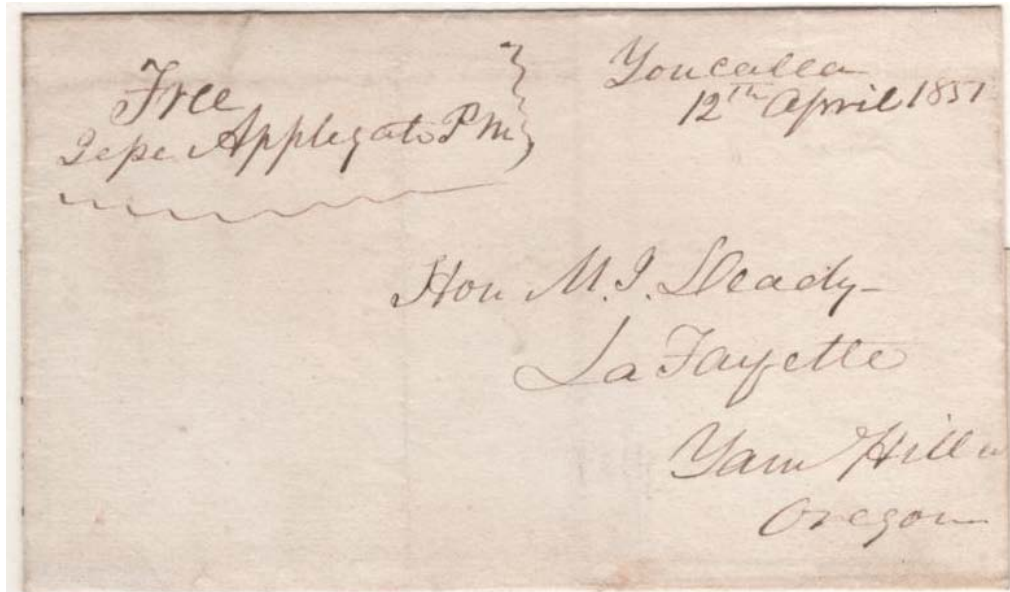 Free
Jesse Applegate P.M.
Youcalla
12th April 1851
Hon M. P. Deady
La Fayette
Yam Hill
Oregon